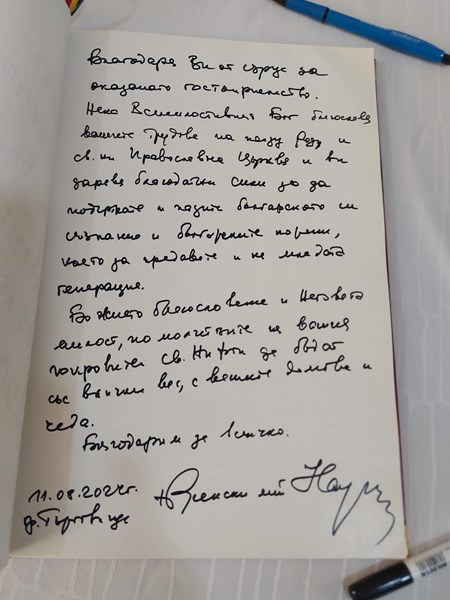 Благодаря Ви от сърце за
оказаното гостоприемство.
Нека Всемилостивия Бог благослови
вашите трудове на полза роду и
св. ни Православна Църква и ви
дарява благодатни сили за да
поддържате и пазите българското си
съзнание и българските корени,
което да предавате и на младата
генерация.
Божието благословение и Неговата
милост, по молитвите на вашия
покровител св. да бъдат
със всички вас, с вашите домове и
чеда.
Благодарим за всичко.
11.08.2024г.
гр. Търговище
Наум